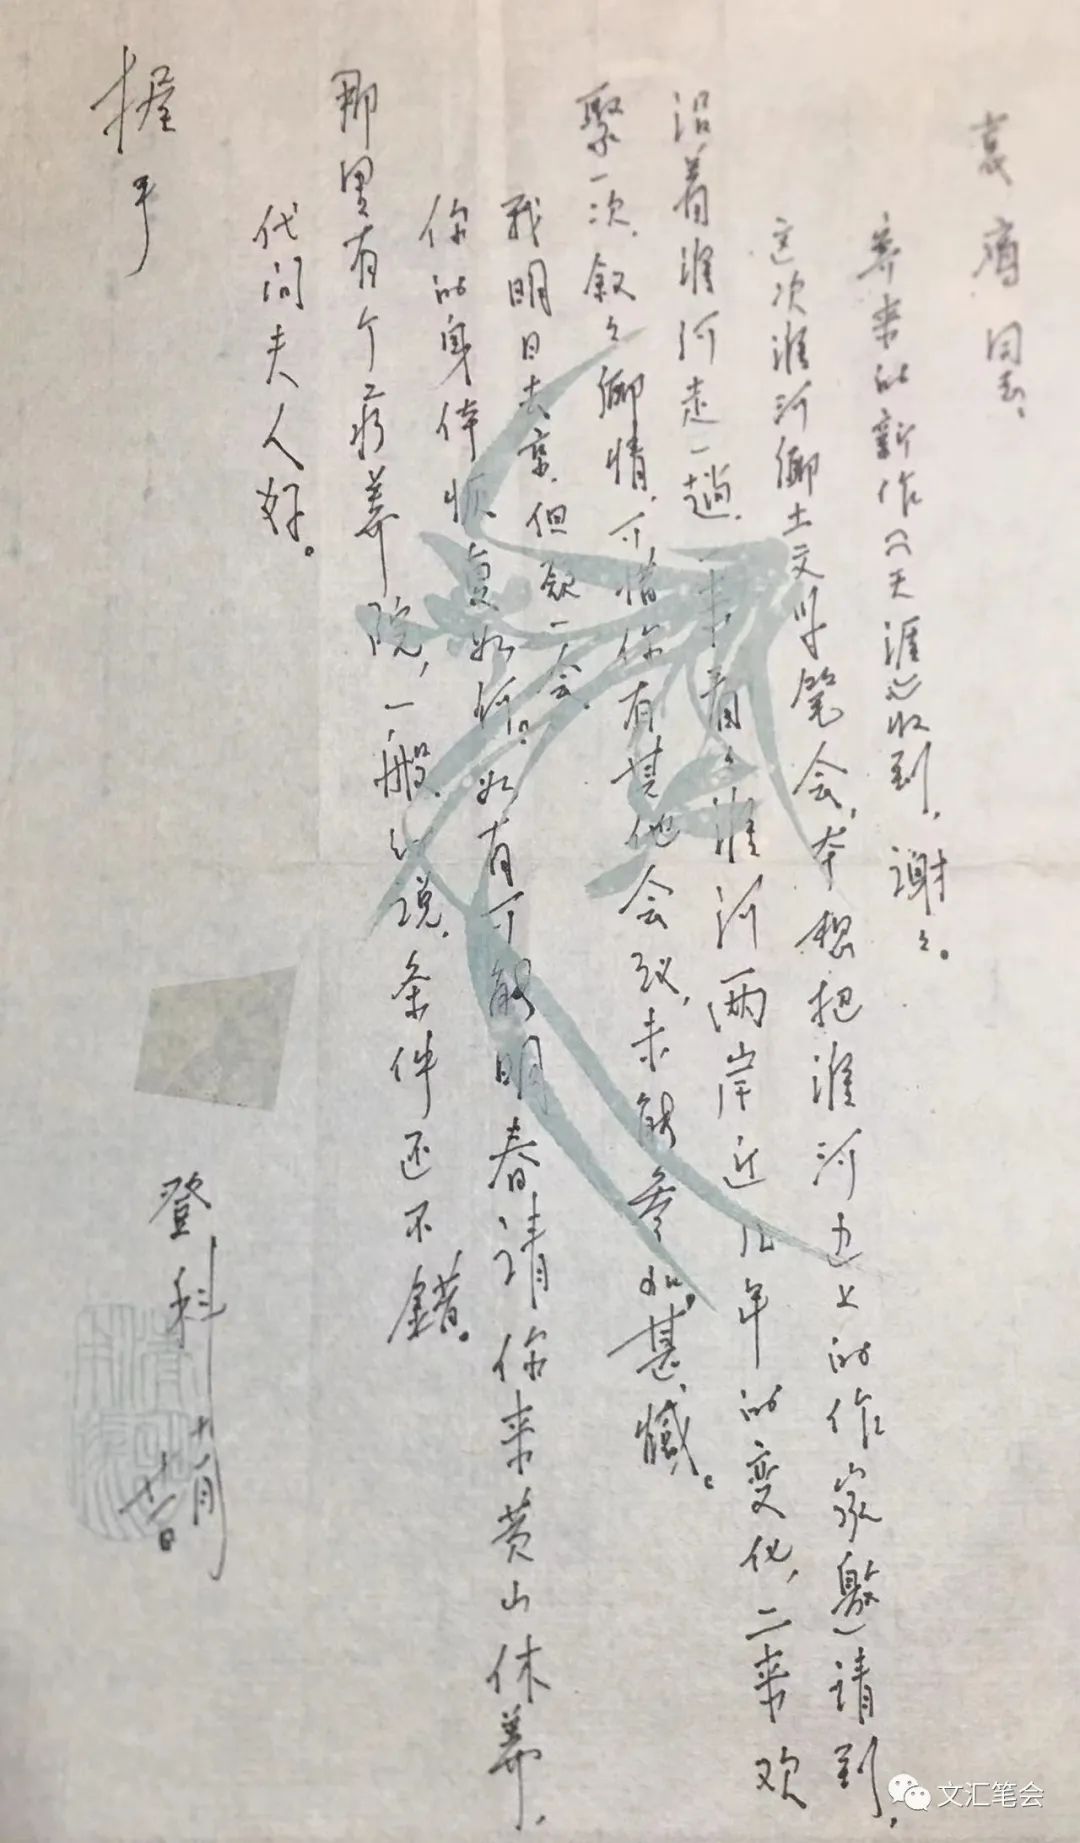 袁鹰同志：
寄来的新作《天涯》收到，谢々。
这次淮河乡土文学笔会，本想把淮河边上的作家邀请到，
沿着淮河走一趟，一来看々淮河两岸近几年的变化，二来欢
聚一次，叙々乡情，可惜你有其他会议，未能参加。甚憾。
我明日去京，但欲一会。
你的身体恢复如何？如有可能明春请你来黄山休养，
那里有个疗养院，一般々说，条件还不错。
代问夫人好。
握手
登科
十一月
廿日
文汇笔会